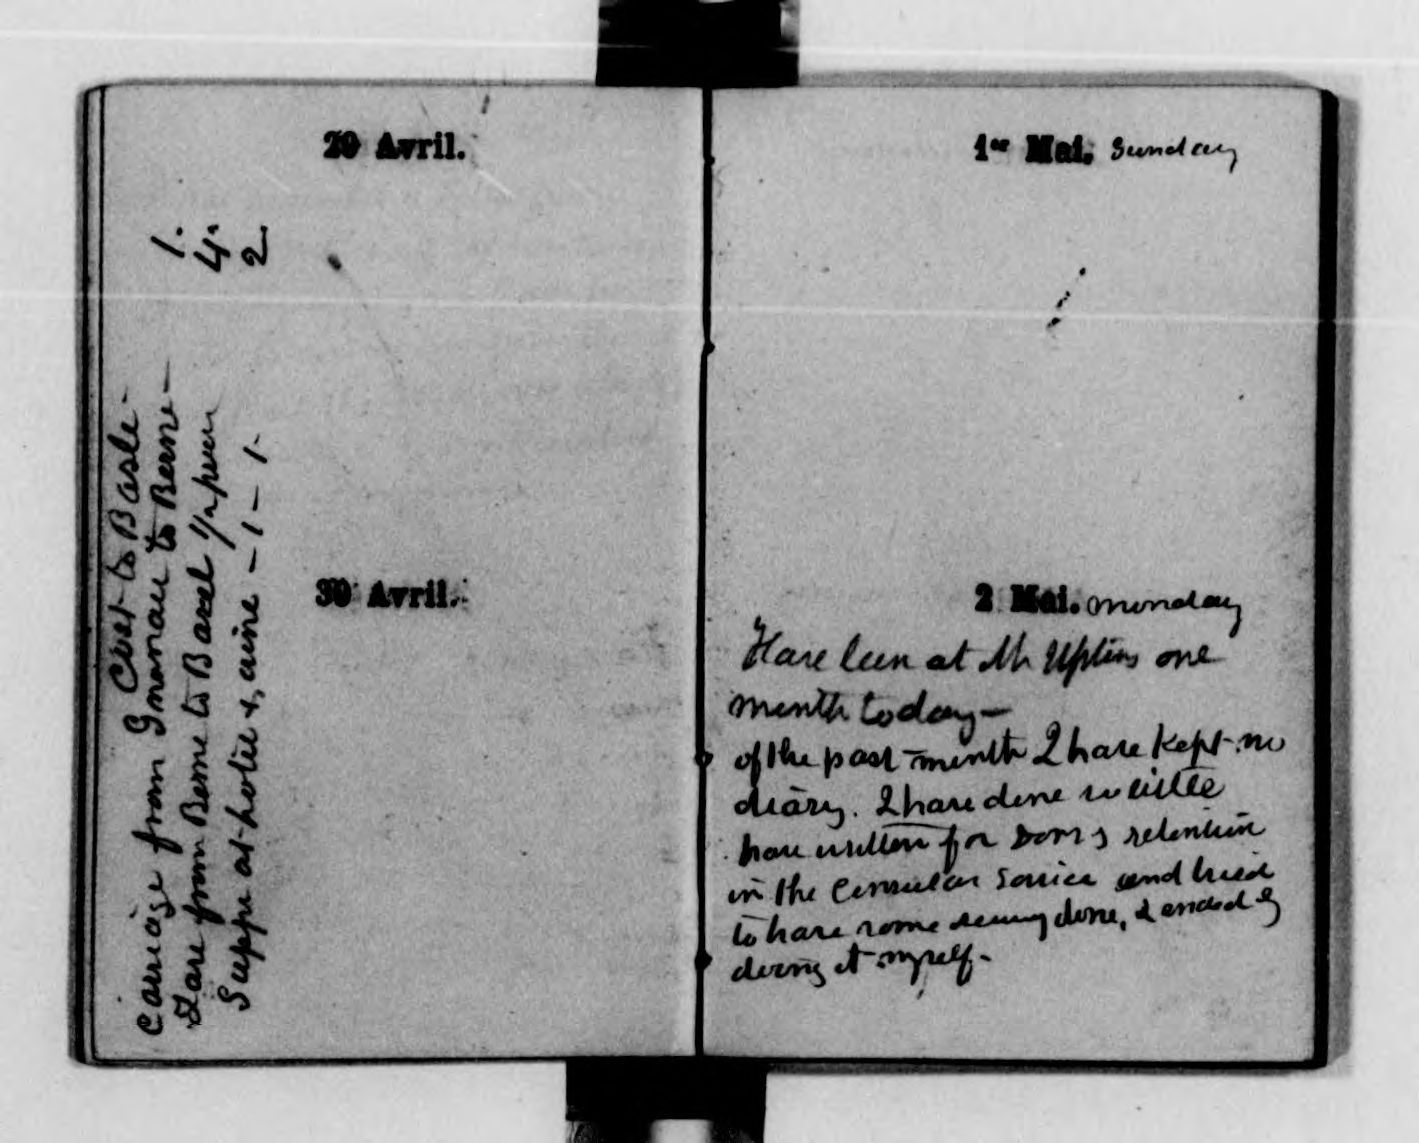 29 Avril.
Cost to Basle -
Carriage from Gumanau to Berne - 1.
Fare from Berne to Basel 4.
Suppe at hotel &, wine - 1 - 1 - 1. 2
30 Avril.
1er Mai. Sunday
2 Mai. Monday
Have been at Mr Uptons one
month today -
of the past month I have kept no
diary. I have done so little
have written for Dorrs retention
in the Consular Service and tried
to have some sewing done, & ended by
doing it myself.